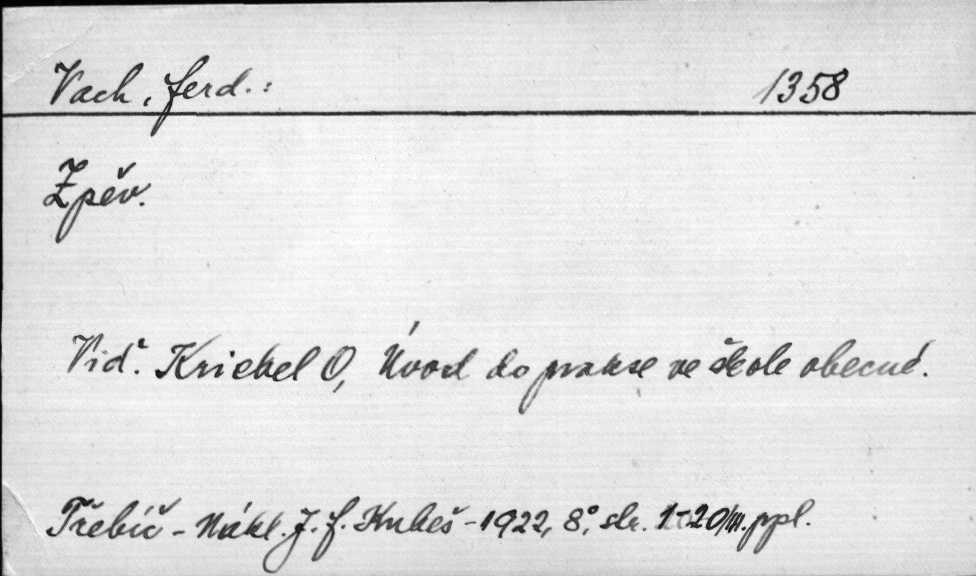 Vach, Ferd.: 1358
Zpěv.
Viď. Kriebel O, Úvod do prakse ve škole obecné.
Třebíč - Nákl. J. F. Kubeš - 1922, 8°, str. 120/III. ppl.